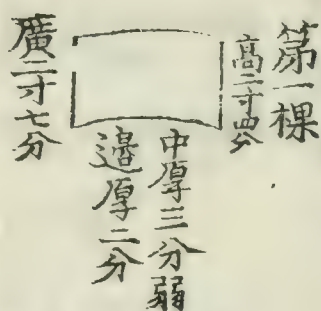 第一棵
高二寸四分
中厚三分弱
邉厚二分
廣二寸七分